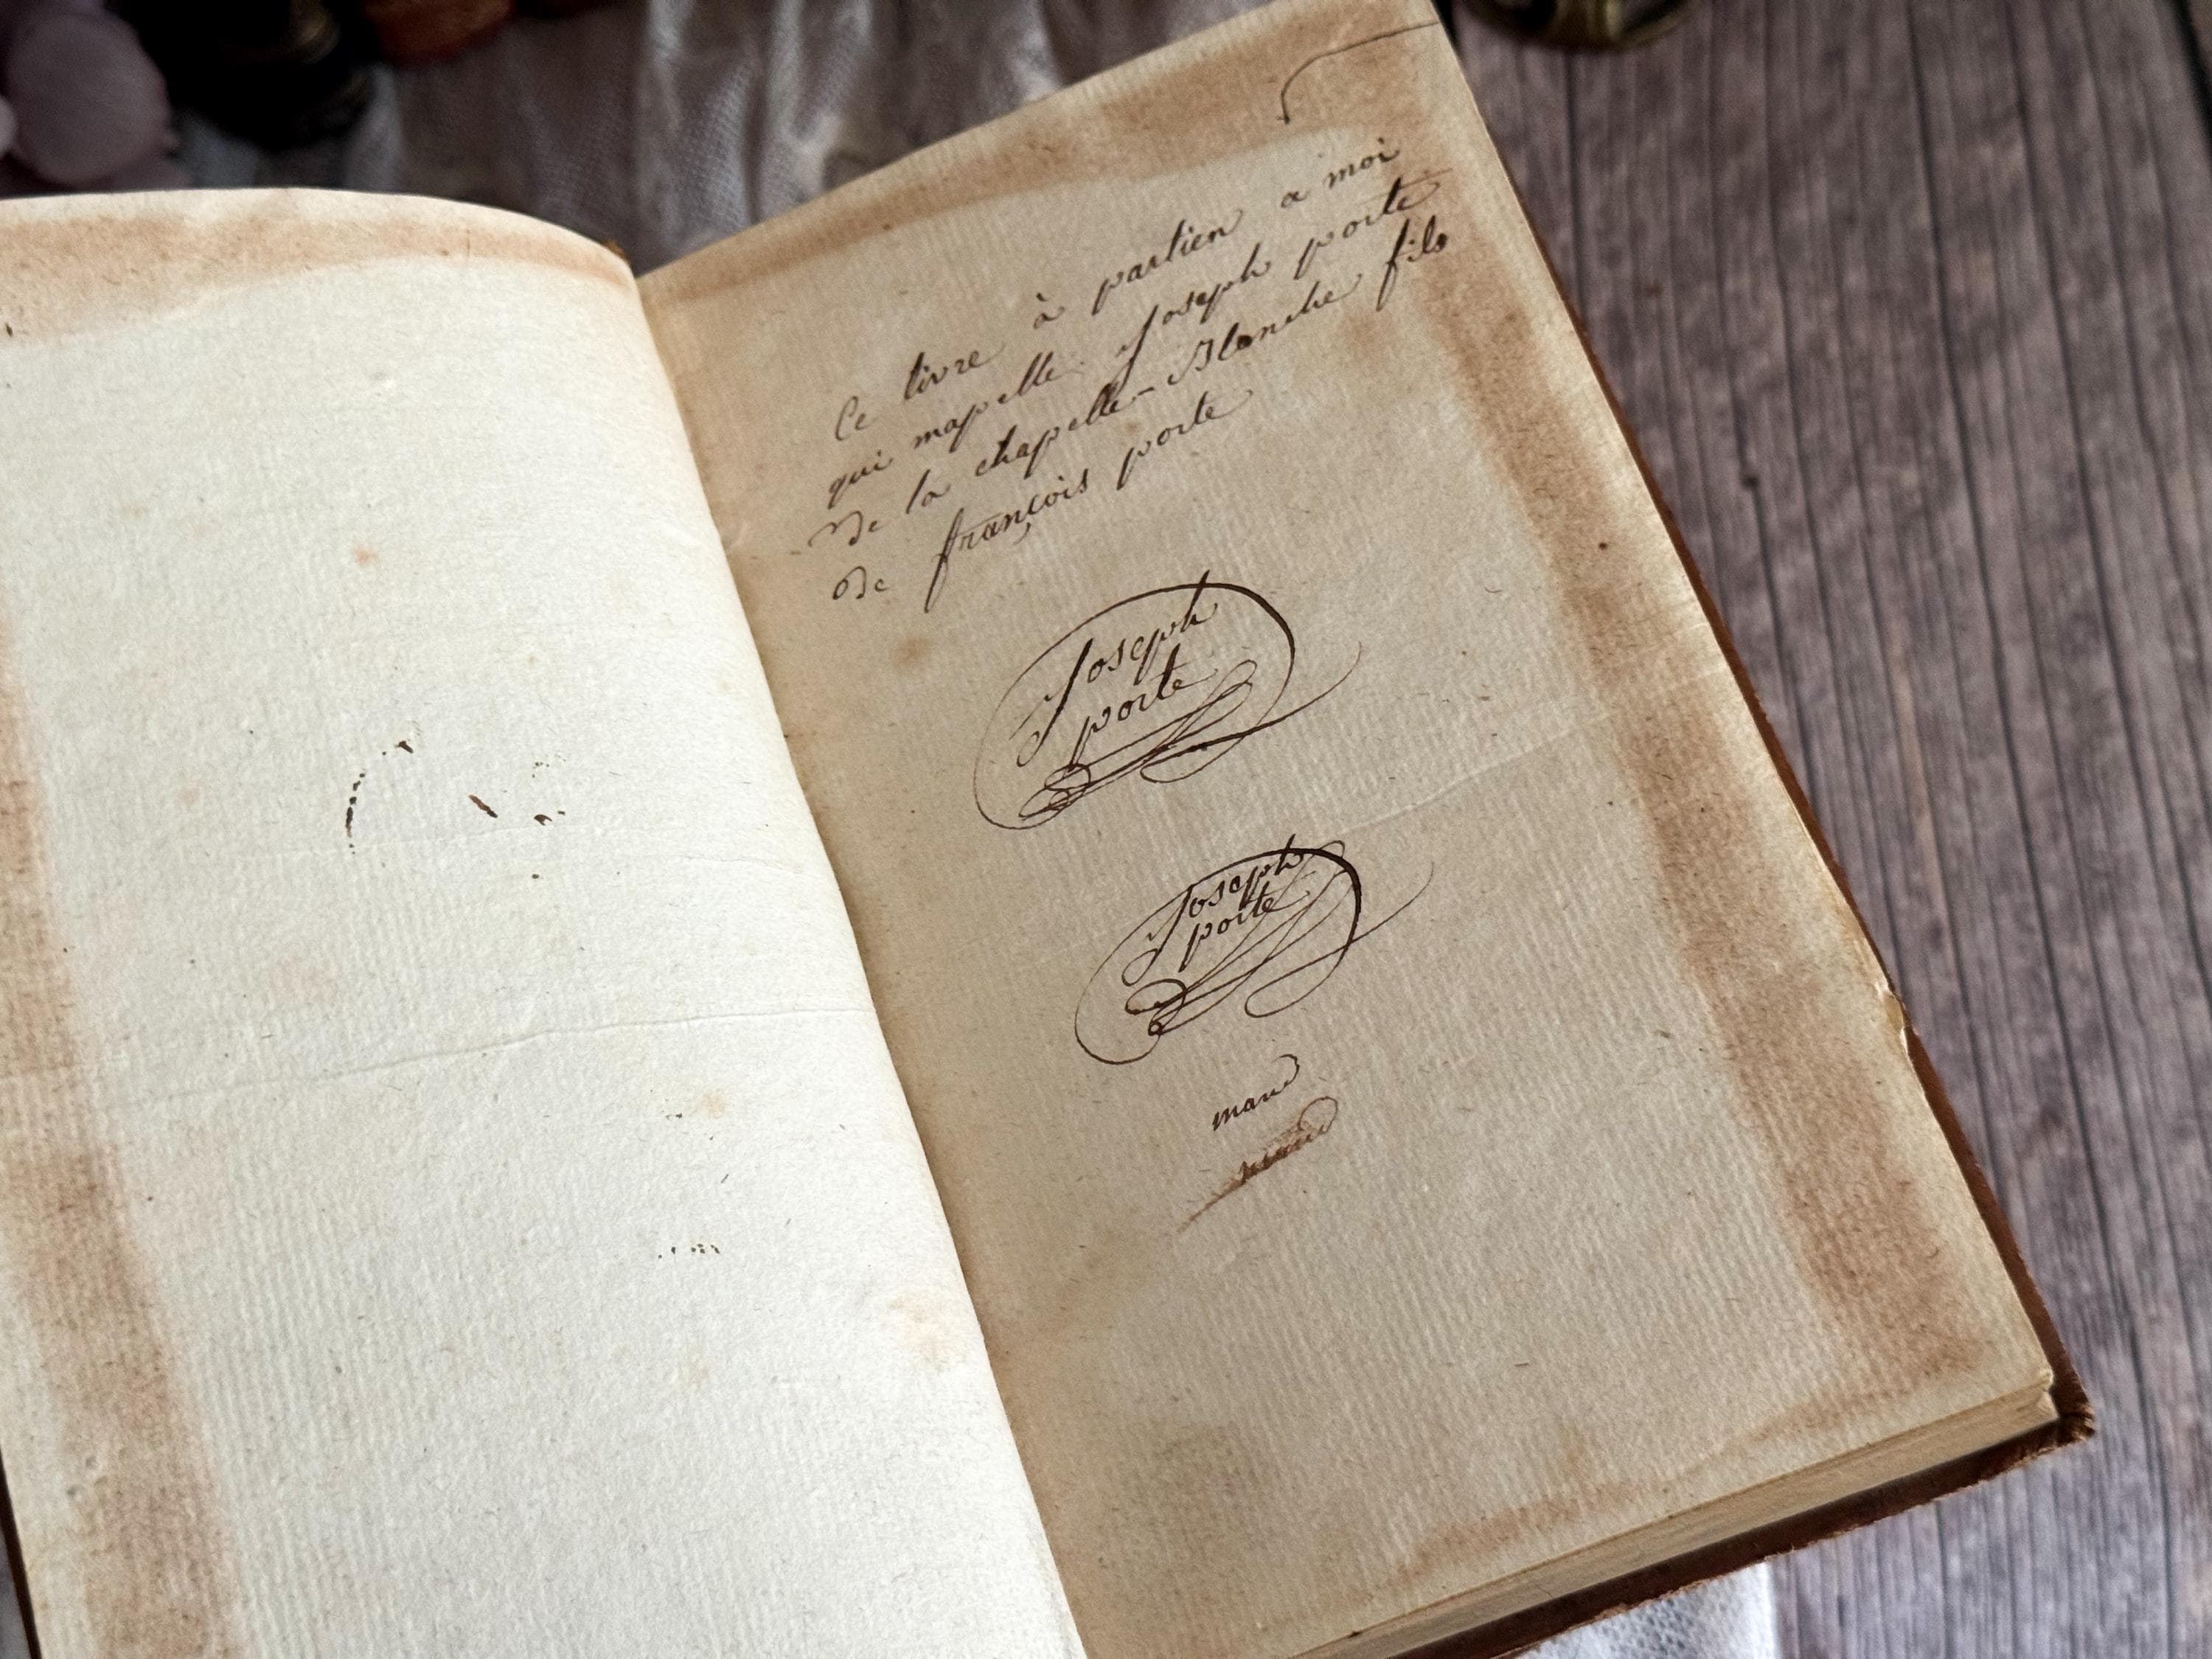 Ce livre à partien a moi
qui mapelle Joseph porte
De la chapelle-Blanche fils
De françois porte
Joseph
porte
Joseph
porte